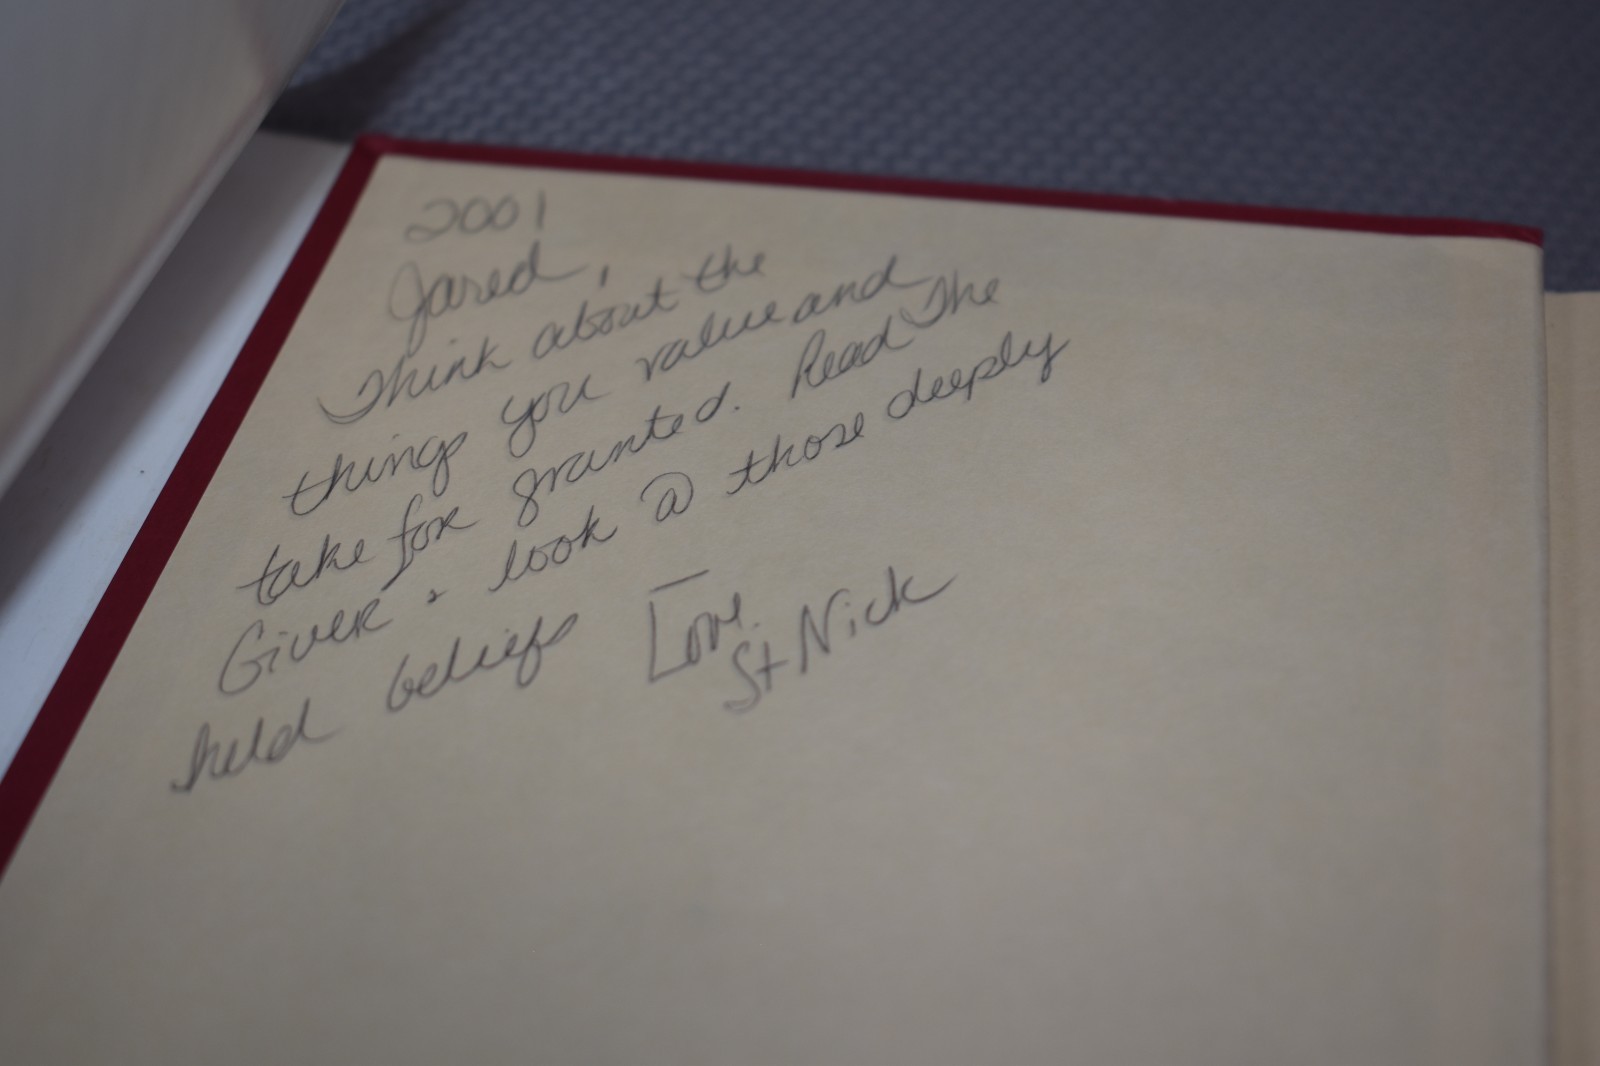 2001
Jared,
Think about the
things you value and
take for granted. Read The
Giver & look @ those deeply
held beliefs Love.
St Nick